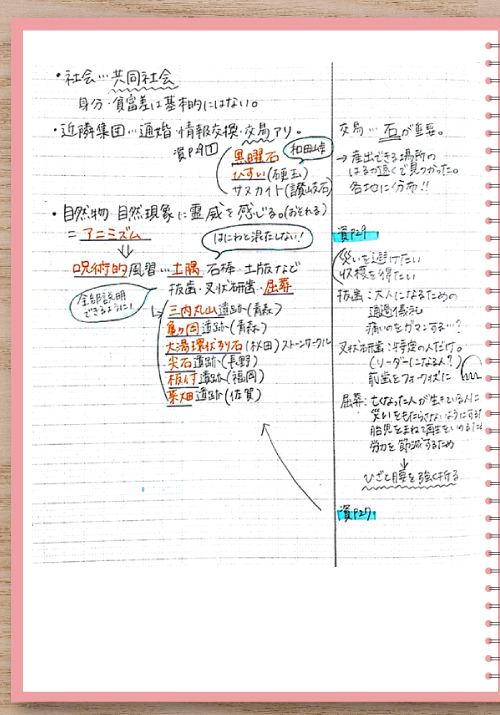 ・社会…共同社会
身分・貧富差は基本的にはない。
・近隣集団…通婚・情報交換・交易アリ。
資P29 1
黒曜石
和田峠
ひすい(硬玉)
サヌカイト(讃岐石)
・自然物・自然現象に霊威を感じる。(おそれる)
=アニミズム
はにわと混たしない!
呪術的風習…土偶・石棒・土版など
抜歯・叉状研歯・屈葬
全部説明
できるように!
三内丸山遺跡(青森)
亀ヶ岡遺跡(青森)
大湯環状列石(秋田)ストーンサークル
尖石遺跡(長野)
板付遺跡(福岡)
菜畑遺跡(佐賀)
交易…石が重要。
→産出できる場所の
はるか遠くで見つかった。
各地に分布!!
資P29
災いを避けたい
収穫を得たい
抜歯:大人になるための
通過儀礼
痛いのをガマンする…?
叉状研歯:特定の人だけ。
(リーダーになる人?)
前歯をフォーク状に
屈葬:亡くなった人が生きている人に
災いをもたらさないようにする
胎児をまねて再生をいのるため
労力を節減するため
ひざと腰を強く折る
資P27